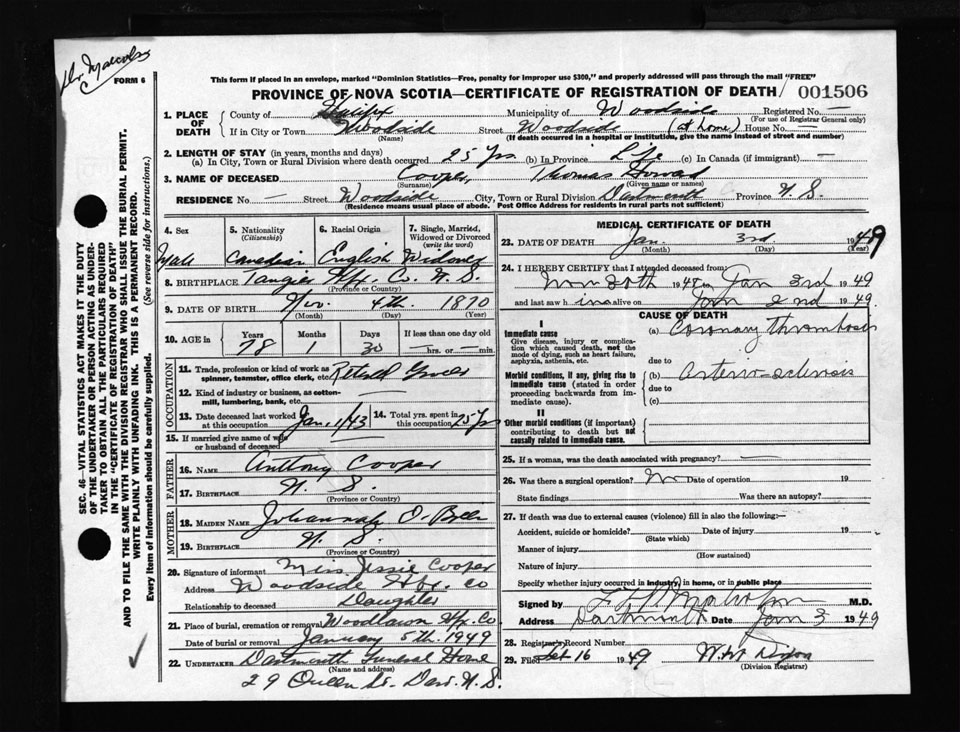 Dr. Malcolm
FORM 6
This form if placed in an envelope, marked "Dominion Statistics—Free, penalty for improper use $300," and properly addressed will pass through the mail "FREE"
PROVINCE OF NOVA SCOTIA—CERTIFICATE OF REGISTRATION OF DEATH / 001506
1. PLACE OF DEATH
County of Halifax Municipality of Woodside Registered No. —
(For use of Registrar General only)
If in City or Town Woodside Street Woodside (at home) House No.
(Name) (If death occurred in a hospital or institution, give the name instead of street and number)
2. LENGTH OF STAY (in years, months and days)
(a) In City, Town or Rural Division where death occurred 25 Yrs. (b) In Province Life (c) In Canada (if immigrant) —
3. NAME OF DECEASED Cooper, Thomas Howard
(Surname) (Given name or names)
RESIDENCE No. — Street Woodside City, Town or Rural Division Dartmouth Province N. S.
(Residence means usual place of abode. Post Office Address for residents in rural parts not sufficient)
4. Sex
Male
5. Nationality (Citizenship)
Canadian
6. Racial Origin
English
7. Single, Married, Widowed or Divorced (write the word)
Widower
8. BIRTHPLACE Tangier Hfx. Co. N. S.
(Province or Country)
9. DATE OF BIRTH Nov. 4th. 1870
(Month) (Day) (Year)
10. AGE in Years Months Days If less than one day
78 1 30 — hrs. or — min.
OCCUPATION
11. Trade, profession or kind of work as spinner, teamster, office clerk, etc. Retired Grocer
12. Kind of industry or business, as cotton-mill, lumbering, bank, etc.
13. Date deceased last worked at this occupation Jan. 1/43
14. Total yrs. spent in this occupation 25 Yrs
15. If married give name of wife or husband of deceased
FATHER
16. NAME Anthony Cooper
17. BIRTHPLACE N. S.
(Province or Country)
MOTHER
18. MAIDEN NAME Johannah
19. BIRTHPLACE N. S.
(Province or Country)
20. Signature of informant Miss Jessie Cooper
Address Woodside Hfx. Co
Relationship to deceased Daughter
21. Place of burial, cremation or removal Woodlawn Hfx. Co.
Date of burial or removal January 5th. 1949
22. UNDERTAKER Dartmouth Funeral Home
(Name and address)
29 Queen St. Dart. N. S.
MEDICAL CERTIFICATE OF DEATH
23. DATE OF DEATH Jan. 3rd 1949
(Month) (Day)
24. I HEREBY CERTIFY that I attended deceased from:
Nov 20th 1948 Jan 3rd 1949
and last saw him alive on Jan 2nd 1949.
CAUSE OF DEATH
I
Immediate cause
Give disease, injury or complication which caused death, not the mode of dying, such as heart failure, asphyxia, asthenia, etc.
(a) Coronary thrombosis
due to
Morbid conditions, if any, giving rise to immediate cause (stated in order proceeding backwards from immediate cause).
(b) Arterio-sclerosis
due to
(c)
II
Other morbid conditions (if important) contributing to death but not causally related to immediate cause.
25. If a woman, was the death associated with pregnancy? —
26. Was there a surgical operation? No Date of operation 19
State findings Was there an autopsy?
27. If death was due to external causes (violence) fill in also the following:—
Accident, suicide or homicide? Date of injury 19
(State which)
Manner of injury
(How sustained)
Nature of injury
Specify whether injury occurred in industry, in home, or in public place
Signed by Malcolm M.D.
Address Dartmouth Date Jan 3 1949
28. Registrar's Record Number
29. Filed Feb 16 1949
(Division Registrar)
SEC. 46—VITAL STATISTICS ACT MAKES IT THE DUTY
OF THE UNDERTAKER OR PERSON ACTING AS UNDER-
TAKER TO OBTAIN ALL THE PARTICULARS REQUIRED
IN THE "CERTIFICATE OF REGISTRATION OF DEATH"
AND TO FILE THE SAME WITH THE DIVISION REGISTRAR WHO SHALL ISSUE THE BURIAL PERMIT.
WRITE PLAINLY WITH UNFADING INK. THIS IS A PERMANENT RECORD.
Every item of information should be carefully supplied. (See reverse side for instructions.)